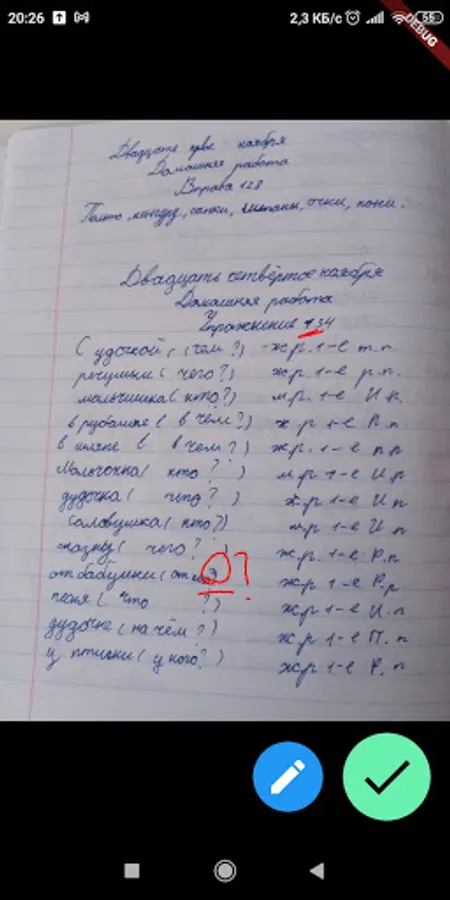 20:26 2,3 КБ/с 55
DEBUG
Двадцать ноября
Домашняя работа
Вправа 128
Пальто, кенгуру, санки, штаны, очки, пони.
Двадцать четвёртое ноября
Домашняя работа
Упражнение 134
С удочкой ( чем ?) - ж р. 1-е т. п.
речушки ( чего ?) ж р. 1-е р. п.
мальчишка ( кто ?) м р. 1-е И. п.
в рубашке ( в чём ?) ж р 1-е П. п.
в ( в чем ?) ж р. 1-е п п
( кто ? ) м р 1-е И р
дудочка ( что ? ) ж р 1-е И п
Соловушка ( кто ?) м р 1-е И п
( чего ? ) ж р. 1-е Р. п
от бабушки ( от О? ж р 1-е Р. р
песня ( что ?) ж р 1-е И. п
дудочке ( на чём ?) ж р 1-е П. п
у птички ( у кого ?) ж р 1-е Р. п